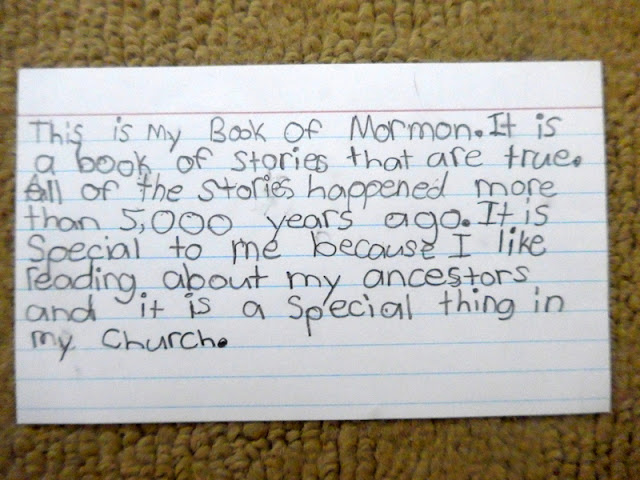 This is My Book Of Mormon. It is
a book of stories that are true.
All of the stories happened more
than 5,000 years ago. It is
Special to me because I like
reading about my ancestors
and it is a special thing in
my church.